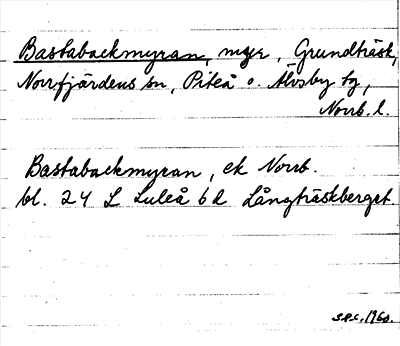 Bastabackmyran, myr, Grundträsk,
Norrfjärdens sn, Piteå o. Älvsby tg,
Norrb. l.
Bastabackmyran, ek Norrb.
bl. 24 L Luleå 6 d Långträskberget.
1960.